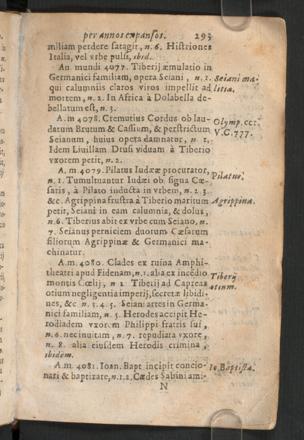 per annos expansos. 293
miliam perdere satagit, n. 6. Histriones
Italia, vel vrbe pulsi, ibid.
An. mundi 4077. Tiberij æmulatio in
Germanici familiam, opera Seiani, n. 1. Seiani ma-
qui calumniis claros viros impellit ad litia.
mortem, n. 2. In Africa à Dolabella de-
bellatum est, n. 3.
A. m 4078. Cremutius Cordus ob lau- Olymp. ccı.
datum Brutum & Cassium, & perstrictum V.C. 777.
Seianum, huius opera damnatur, n 1.
Idem Liuillam Drusi viduam à Tiberio
vxorem petit, n. 2.
A. m 4079. Pilatus Iudææ procurator, Pilatus.
n. 1. Tumultuantur Iudæi ob signa Cæ-
saris, à Pilato inducta in vrbem, n. 2 3.
&c. Agrippina frustra à Tiberio maritum Agrippina.
petit, Seiani in eam calumnia, & dolus,
n. 6. Tiberius abit ex vrbe cum Seiano, n.
7. Seianus perniciem duorum Cæsarum
filiorum Agrippinæ & Germanici ma-
chinatur.
A.m. 4080. Clades ex ruina Amphi-
theatri apud Fidenam, n. 1. alia ex incēdio
montis Cœlij, n 2 Tiberij ad Capreas Tiberij
otium negligentia imperij, secretæ libidi- otium.
nes, &c n. 3. 4. 5. Seiani artes in Germa-
nici familiam, n 5. Herodes accipit He-
rodiadem vxorem Philippi fratris sui,
n. 6. nec inuitam, n. 7. repudiata vxore,
n. 8. alia eiusdem Herodis crimina,
ibidem.
A.m. 4081. Ioan. Bapt incipit concio- Io. Baptista.
nari & baptizare, n. 1. 2. Cædes Sabini ami-
N